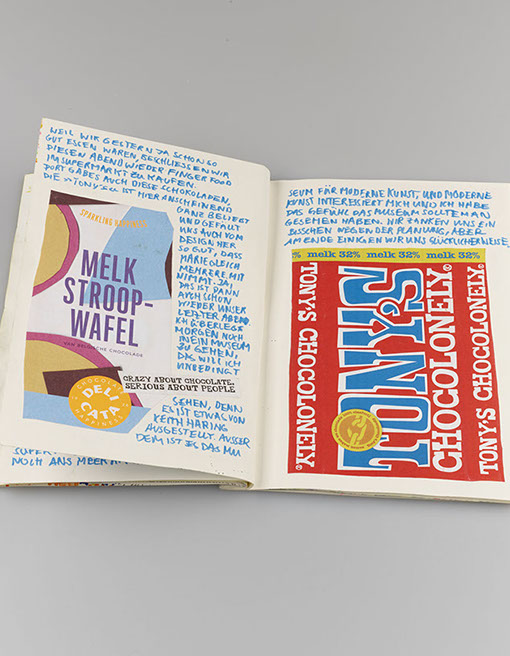 WEIL WIR GESTERN JA SCHON SO
GUT ESSEN WAREN, BESCHLIESSEN WIR
DIESEN ABEND WIEDER FINGERFOOD
IM SUPERMARKT ZU KAUFEN.
DORT GAB ES AUCH DIESE SCHOKOLADEN,
DIE TONY'S IST HIER ANSCHEINEND
GANZ BELIEBT
UND GEFÄLLT
UNS AUCH VOM
DESIGN HER
SO GUT, DASS
MARIE GLEICH
MEHRERE MIT
NIMMT. JA,
DAS IST DANN
AUCH SCHON
WIEDER UNSER
LETZTER ABEND
ICH ÜBERLEGE
MORGEN NOCH
IN EIN MUSEUM
ZU GEHEN,
DAS WILL ICH
UNBEDINGT
SEHEN, DENN
ES IST ETWAS VON
KEITH HARING
AUSGESTELLT. AUSSER
DEM IST ES DAS MU
MELK
STROOP-
WAFEL
VAN BELGISCHE CHOCOLADE
CRAZY ABOUT CHOCOLATE,
SERIOUS ABOUT PEOPLE
CHOCOLATE
DELI
CATA
HAPPINESS
SUPER
NOCH ANS MEER
SEUM FÜR MODERNE KUNST, UND MODERNE
KUNST INTERESSIERT MICH UND ICH HABE
DAS GEFÜHL DAS MUSEUM SOLLTE MAN
GESEHEN HABEN. WIR ZANKEN UNS EIN
BISSCHEN WEGEN DER PLANUNG, ABER
AM ENDE EINIGEN WIR UNS GLÜCKLICHERWEISE.
% melk 32% melk 32% melk 32%
TONY'S CHOCOLONELY®
TONY'S
CHOCOLONELY®
TONY'S CHOCOLONELY.